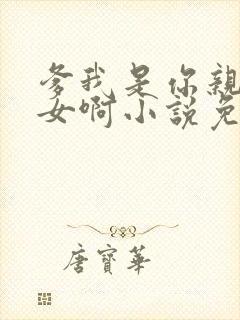 爹我是你親
女啊小說免
唐寶華